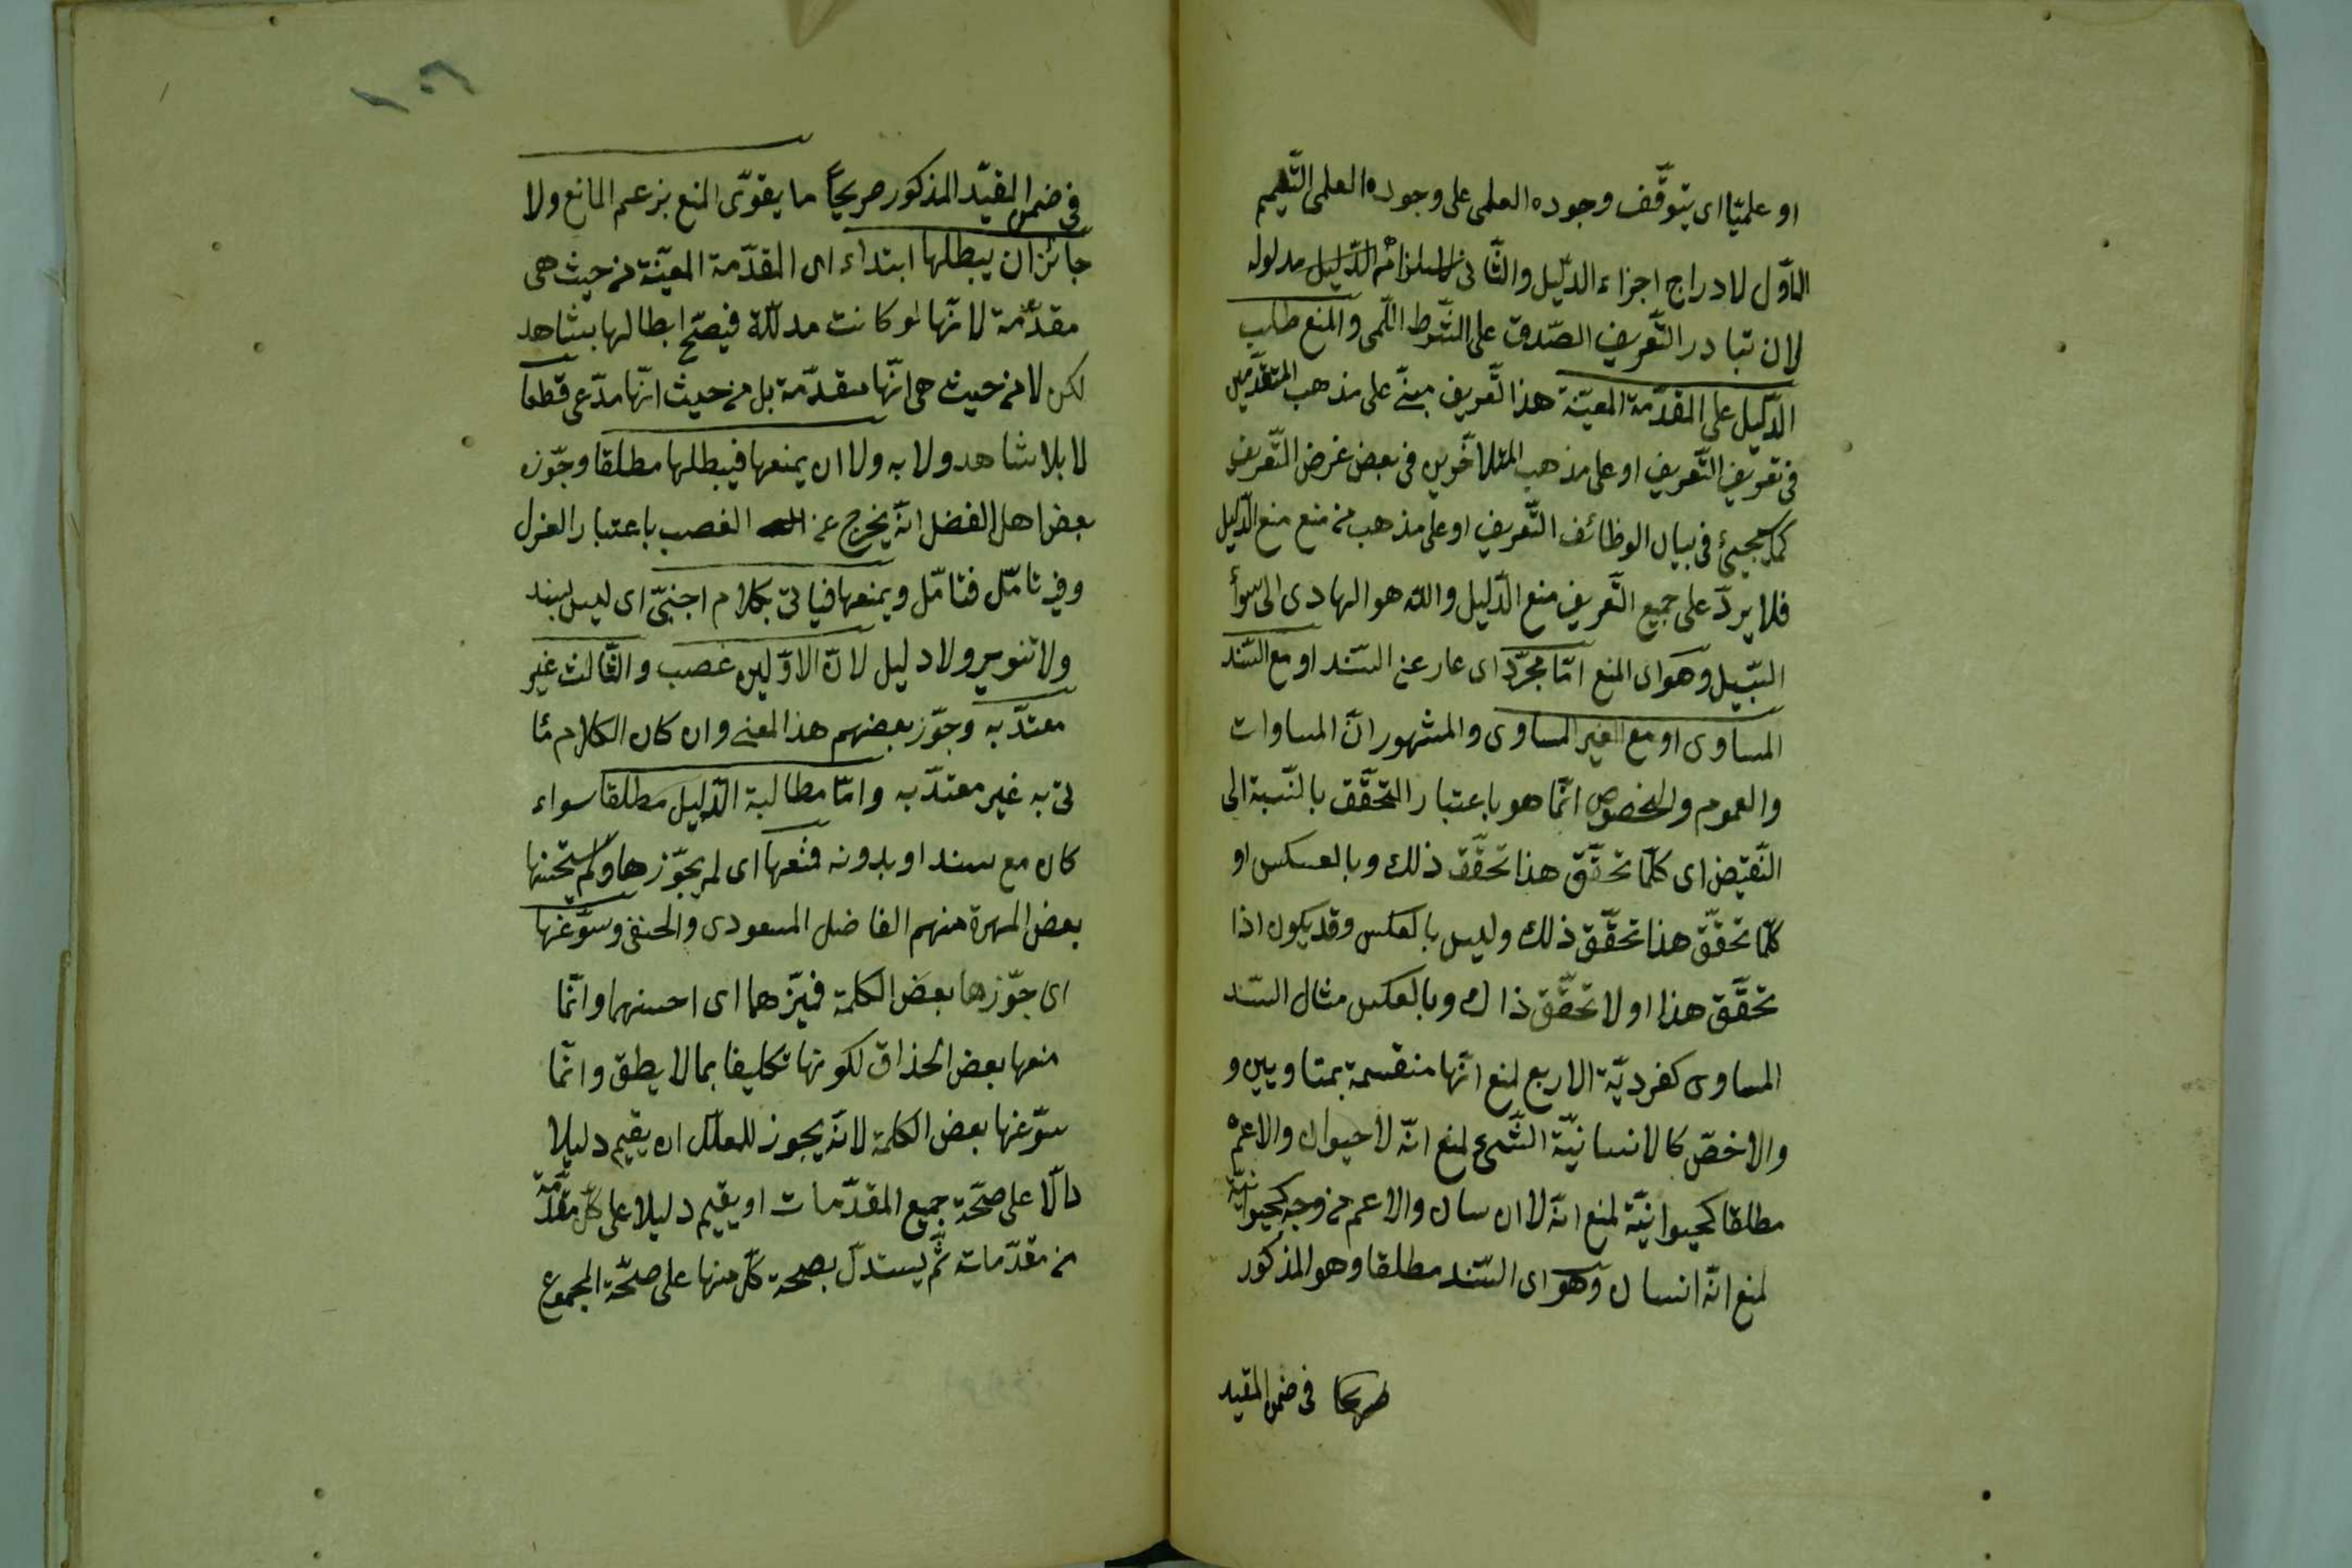 او علميّا اى يتوقّف وجوده العلمى على وجوده العلمى التّعميم
الاوّل لادراج اجزاء الدّليل والثّانى الدّليل مدلوله
لان تبادر التّعريف الصّدق على الشّرط اللّمى والمنع طلب
الدّليل على المقدّمة المعيّنة هذا لتّعريف مبنىّ على مذهب المتقدّمين
فى تعريف التّعريف او على مذهب المتاخّرين فى بعض غرض التّعريف
كما سيجيئ فى بيان الوظائف التّعريف او على مذهب من منع منع الدّليل
فلا يردّ على جميع التّعريف منع الدّليل والله هو الهادى الى سوأ
السّبيل وهو اى المنع امّا مجرّد اى عار عن السّند او مع السّند
المساوى او مع الغير المساوى والمشهور انّ المساوات
والعموم والخصوص انّما هو باعتبار التّحقّق بالنّسبة الى
النّقيض اى كلّما تحقّق هذا تحقّق ذلك وبالعكس او
كلّما تحقّق هذا تحقّق ذلك وليس بالعكس وقد يكون اذا
تحقّق هذا او لا تحقّق ذاك وبالعكس مثال السّند
المساوى كفرديّة الاربع لمنع انّها منقسمة بمتاويين و
والاخصّ كالانسانيّة الشّىء لمنع انّه لا حيوان والاعمّ
مطلقا كحيوانيّة لمنع انّه لا انسان والاعم من وجه كحيوانيّة
لمنع انّه انسان وهو اى السّند مطلقا وهو المذكور
صريحا فى ضمن المقيد
١٠٦
فى ضمن المقيّد المذكور صريحاً ما يقوّى المنع بزعم المانع ولا
جائز ان يبطلها ابتداء اى المقدّمة المعيّنة من حيث هى
مقدّمة لانّها لو كانت مدلّلة فيصحّ ابطالها بشاهد
لكن لا من حيث هى انّها مقدّمة بل من حيث انّها مدّعى قطعا
لا بلا شاهد ولا به ولا ان يمنعها فيبطلها مطلقا وجوّزه
بعض اهل الفضل انّه يخرج عن الغصب باعتبار الغزل
وفيه تامّل فتامّل ويمنعها فياتى بكلام اجنبىّ اى ليس بسند
ولا تنوير ولا دليل لانّ الاوّلين غصب والثّالث غير
معتدّ به وجوّز بعضهم هذا المعنى وان كان الكلام مئا
تى به غير معتدّ به وامّا مطالبة الدّليل مطلقا سواء
كان مع سند او بدونه فمنعها اى لم يجوّزها ولم يستحنها
بعض المهرة منهم الفاضل المسعودى والحنفى وسوّغها
اى جوّزها بعض الكلمة فميّزهما اى احسنهما وانّما
منعها بعض الحذاق لكونها تكليفا بما لا يطق وانّما
سوّغها بعض الكلمة لانّه يجوز للمعلّل ان يقيم دليلا
دالّا على صحّة جميع المقدّمات او يقيم دليلا على كلّ مقدّمة
من مقدّمات ثمّ يستدلّ بصحة كلّ منها على صحّة المجموع